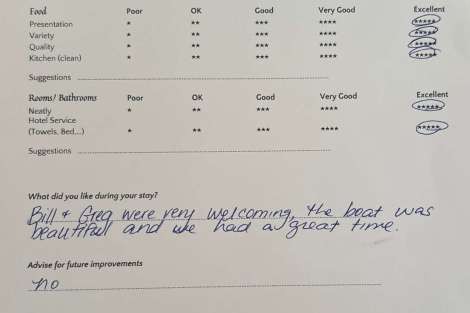 Food Poor OK Good Very Good Excellent
Presentation * ** *** **** *****
Variety * ** *** **** *****
Quality * ** *** **** *****
Kitchen (clean) * ** *** **** *****
Suggestions
Rooms/ Bathrooms Poor OK Good Very Good Excellent
Neatly * ** *** **** *****
Hotel Service
(Towels, Bed...) * ** *** **** *****
Suggestions
What did you like during your stay?
Bill + Greg were very welcoming, the boat was
beautifull and we had a great time.
Advise for future improvements
no